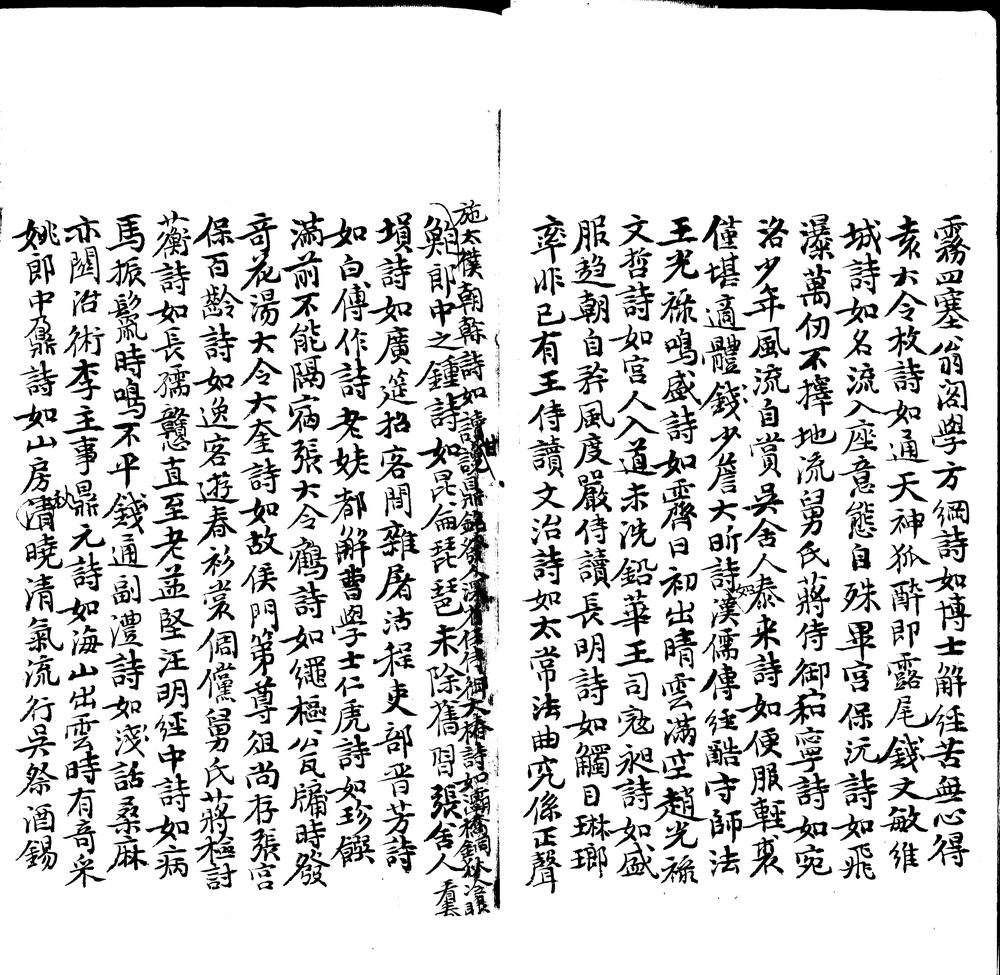 霧四塞翁閣學方綱詩如博士解經苦無心得
袁大令枚詩如通天神狐醉即露尾錢文敏維
城詩如名流入座意態自殊畢宮保沅詩如飛
瀑萬仞不擇地流舅氏蔣侍御和寧詩如宛
洛少年風流自賞吳舍人泰来詩如便服輕裘
僅堪適體錢少詹大昕詩如漢儒傳經酷守師法
王光祿鳴盛詩如霽日初出晴雲滿空趙光祿
文哲詩如宮人入道未洗鉛華王司寇昶詩如盛
服趋朝自矜風度嚴侍讀長明詩如觸目琳瑯
率非己有王侍讀文治詩如太常法曲究係正聲
施太僕朝幹詩如讀甘讒鼎銘任侍御大椿詩如灞橋銅狄冷眼看春
鮑郎中之鍾詩如昆侖琵琶未除舊習張舍人
塤詩如廣筵招客間雜屠沽程吏部晋芳詩
如白傅作詩老妓都解曹學士仁虎詩如珍饌
滿前不能隔宿張大令鶴詩如繩樞瓮牖時發
奇花湯大令大奎詩如故侯門第尊俎尚存張宮
保百齡詩如逸客遊春衫裳倜儻舅氏蔣檢討
蘅詩如長孺戇直至老益堅汪明經中詩如病
馬振鬣時鳴不平錢通副灃詩如淺話桑麻
亦關治術李主事鼎元詩如海山出雲時有奇采
姚郎中鼐詩如山房秋清曉清氣流行吳祭酒錫